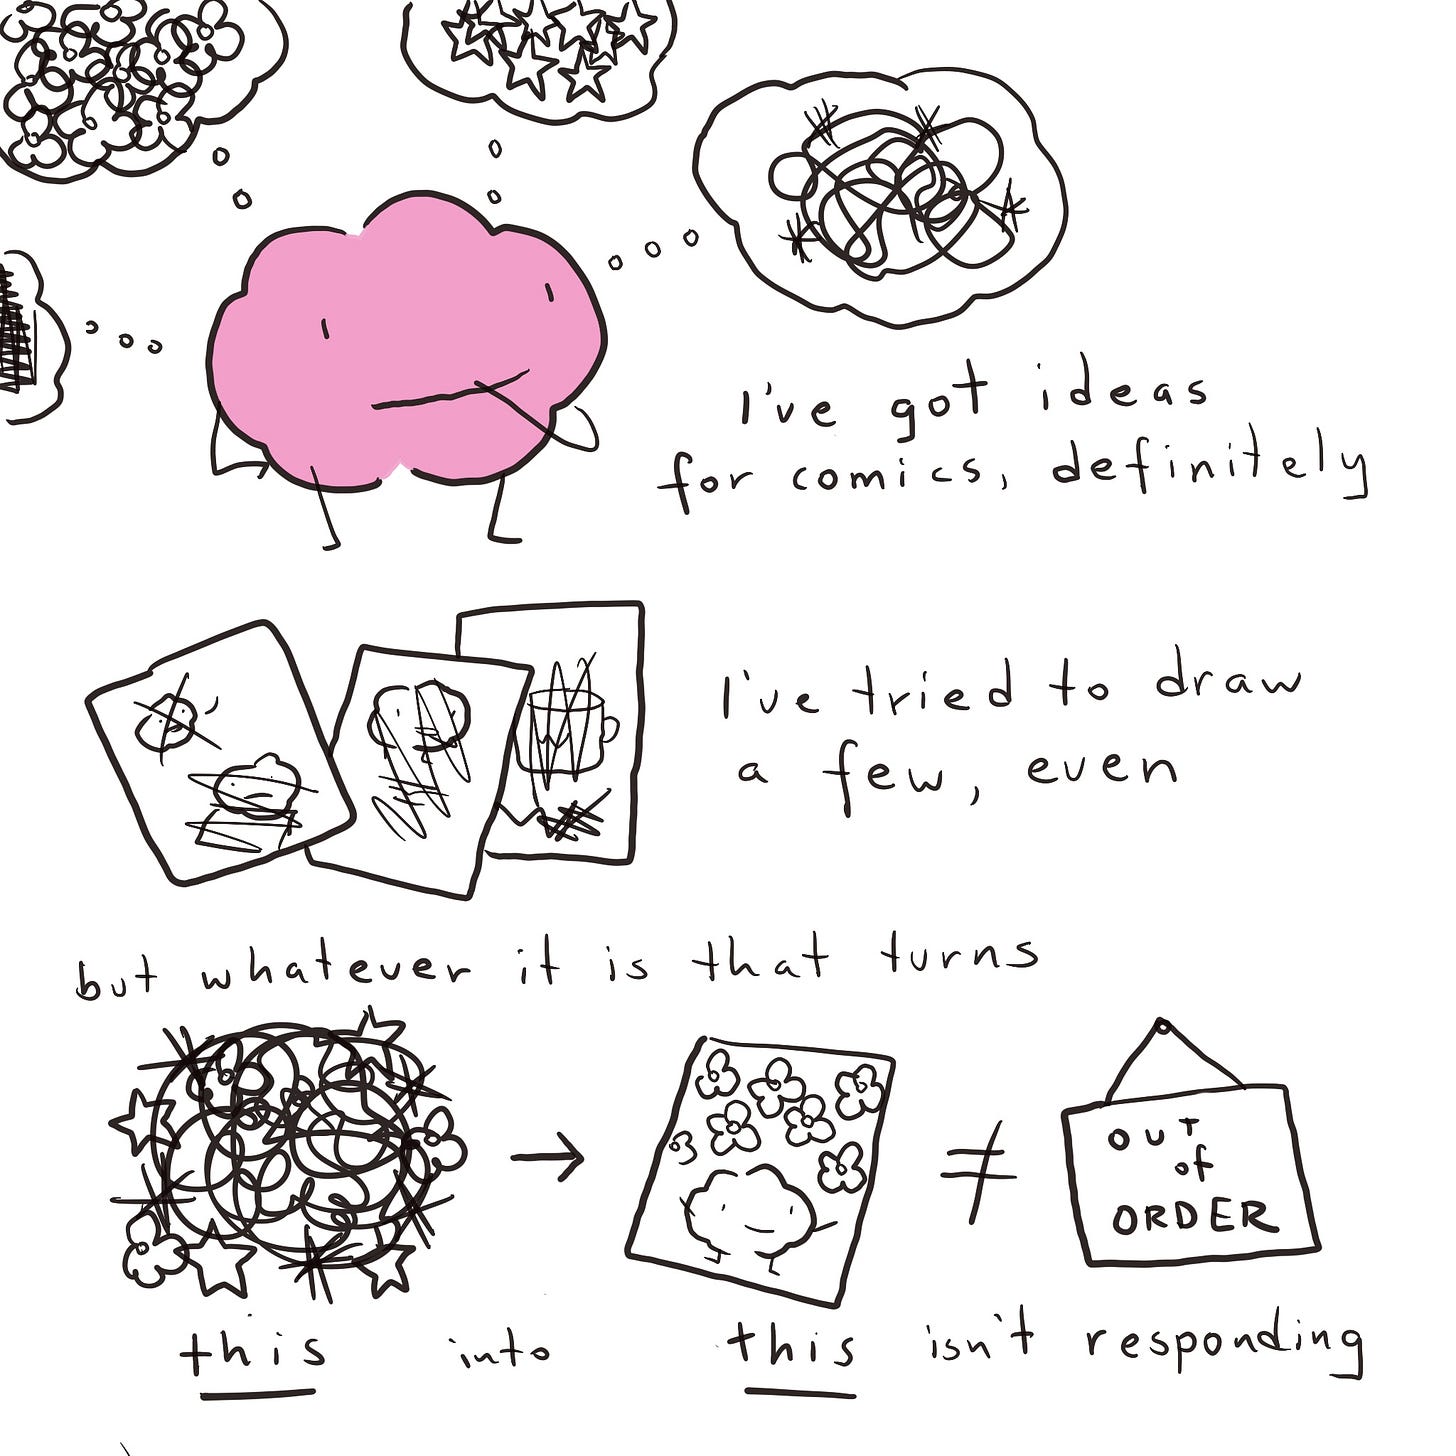 I've got ideas
for comics, definitely
I've tried to draw
a few, even
but whatever it is that turns
OUT
of
ORDER
this into this isn't responding